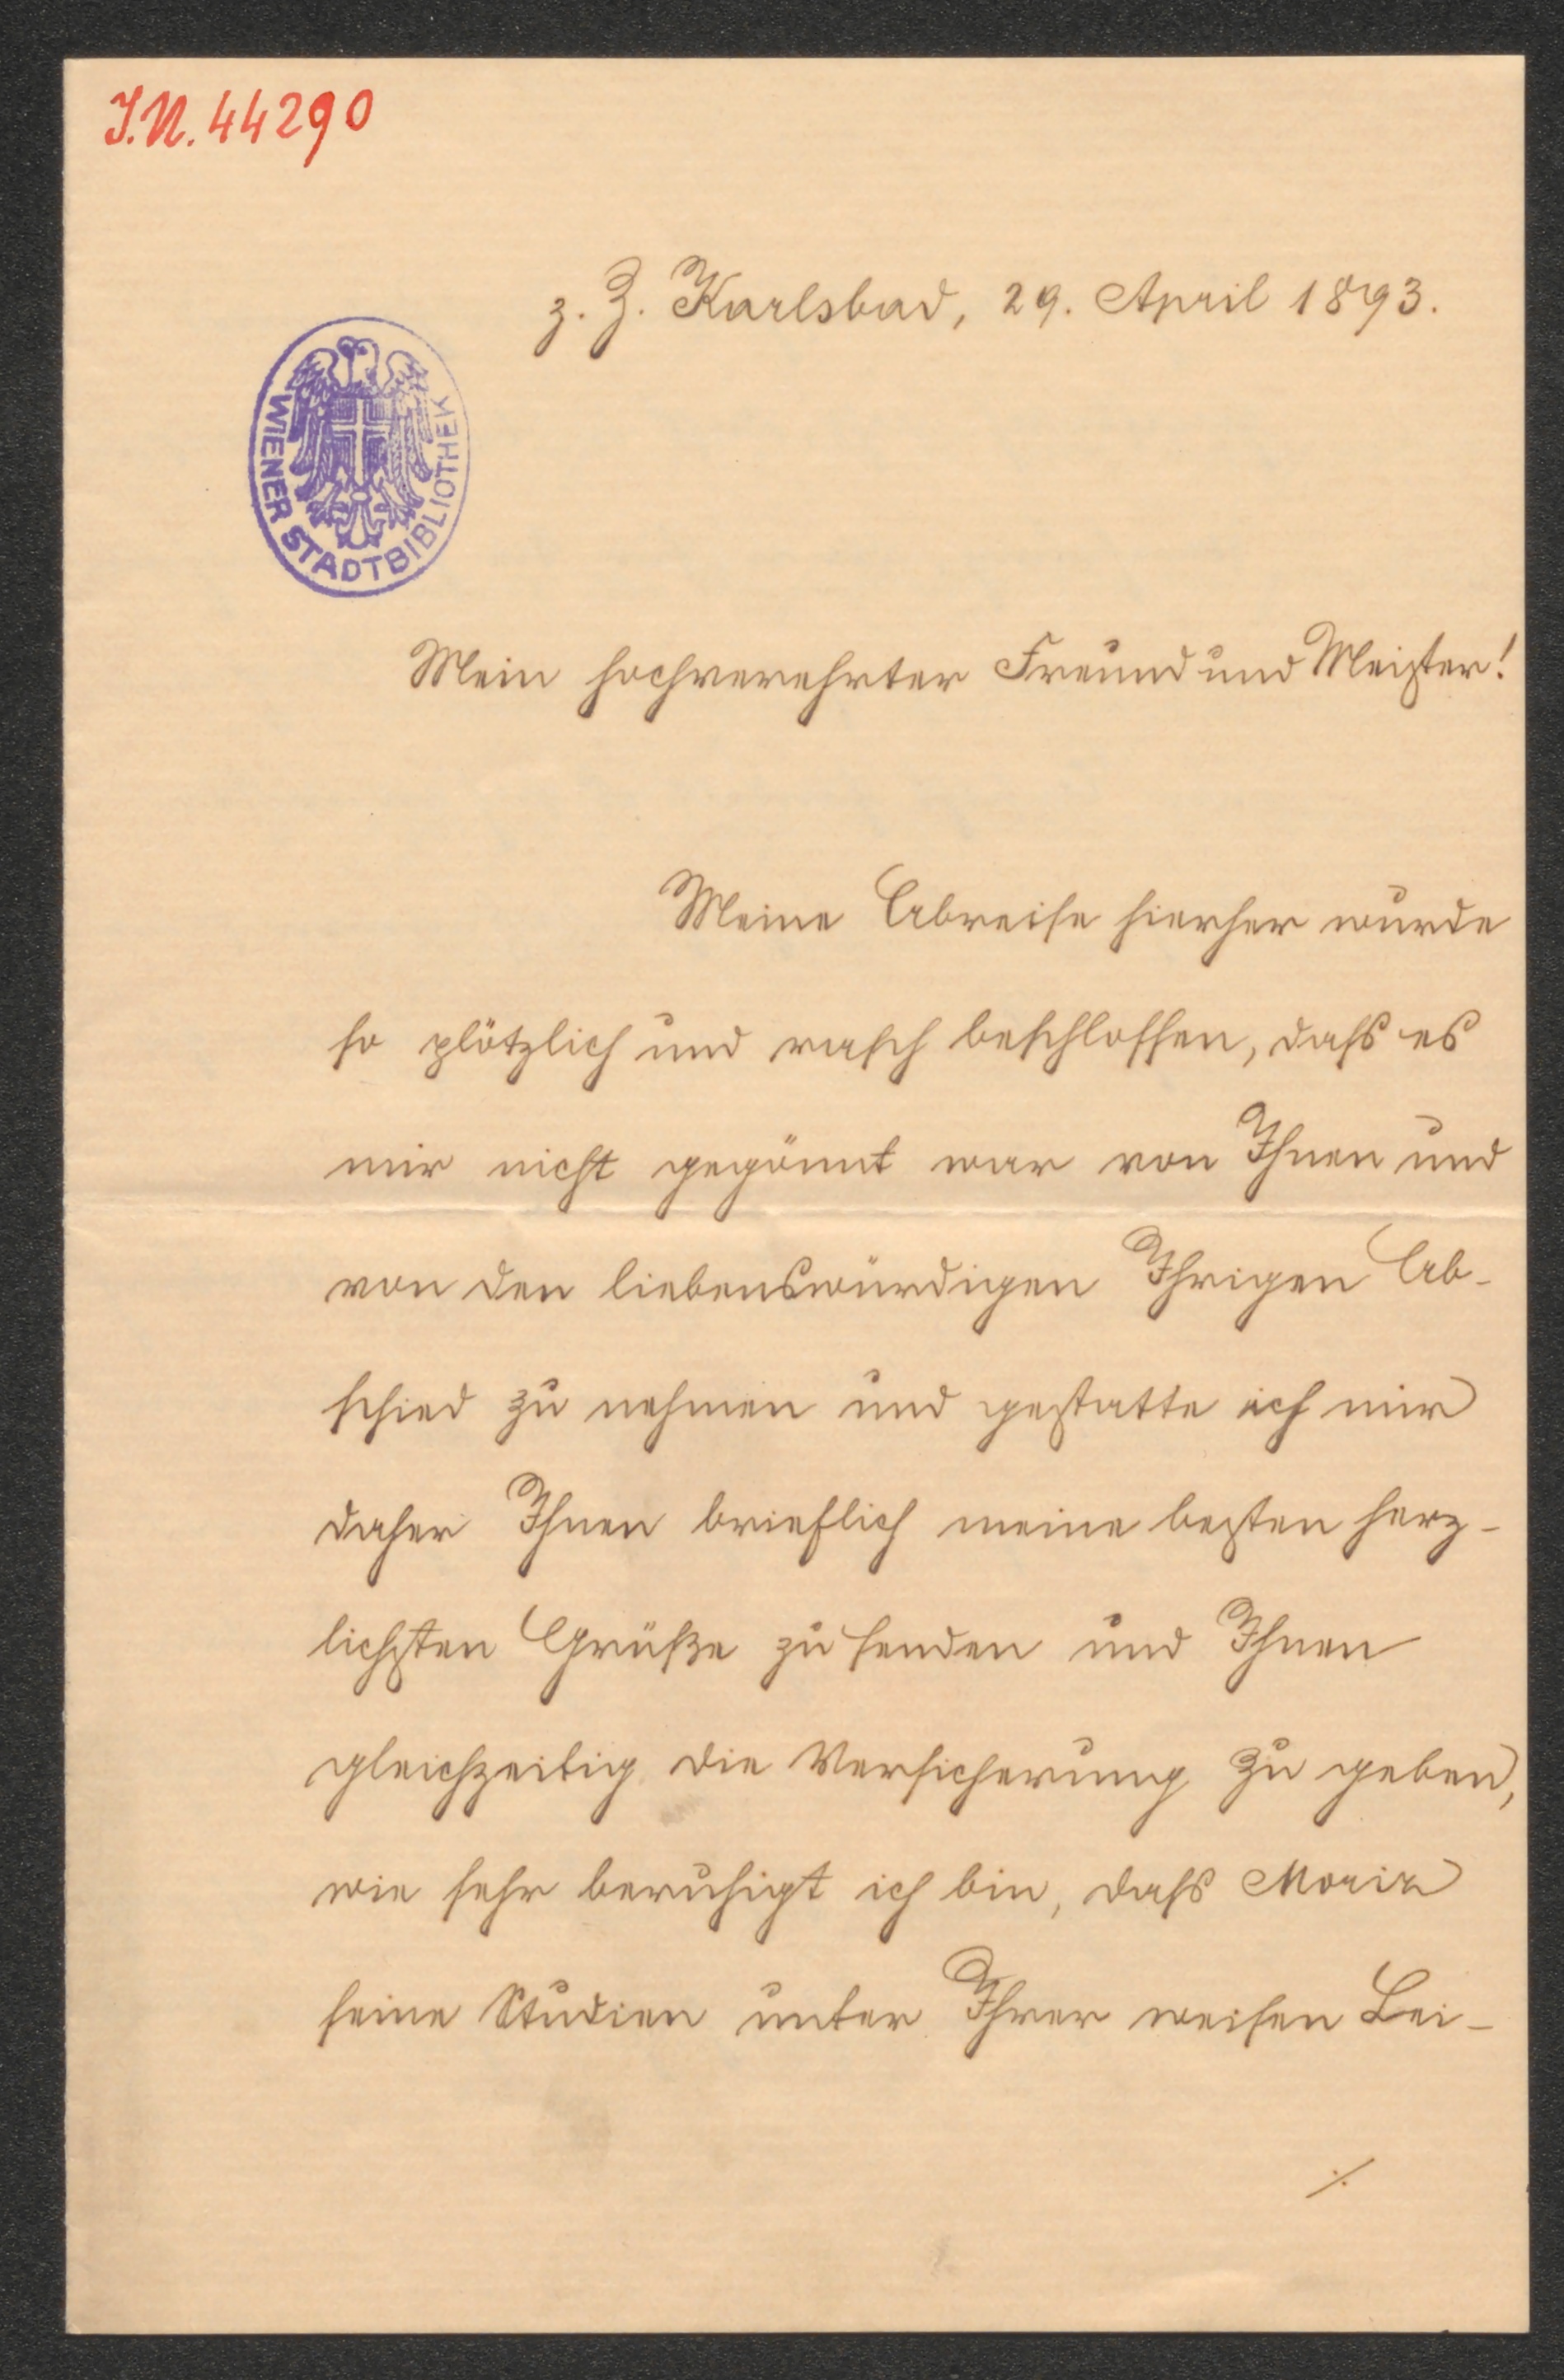 J.N. 44290
z. Z. Karlsbad, 29. April 1893.
WIENER STADTBIBLIOTHEK
Mein hochverehrter Freund und Meister!
Meine Abreise hierher wurde
so plötzlich und rasch beschlossen, dass es
mir nicht gegönnt war von Ihnen und
von den liebenswürdigen Ihrigen Ab-
schied zu nehmen und gestatte ich mir
daher Ihnen brieflich meine besten herz-
lichsten Grüße zu senden und Ihnen
gleichzeitig die Versicherung zu geben,
wie sehr beruhigt ich bin, dass Moriz
seine Studien unter Ihrer weisen Lei-
./.